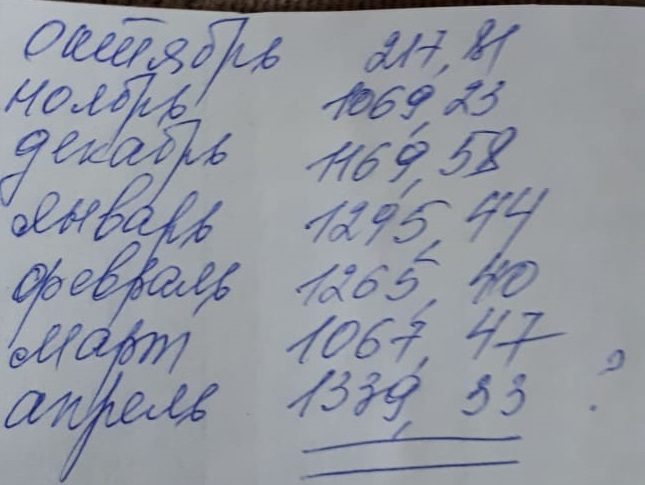 октябрь 217,81
ноябрь 1069,23
декабрь 1169,58
январь 1295,44
февраль 1265,40
март 1067,47
апрель 1339,33 ?